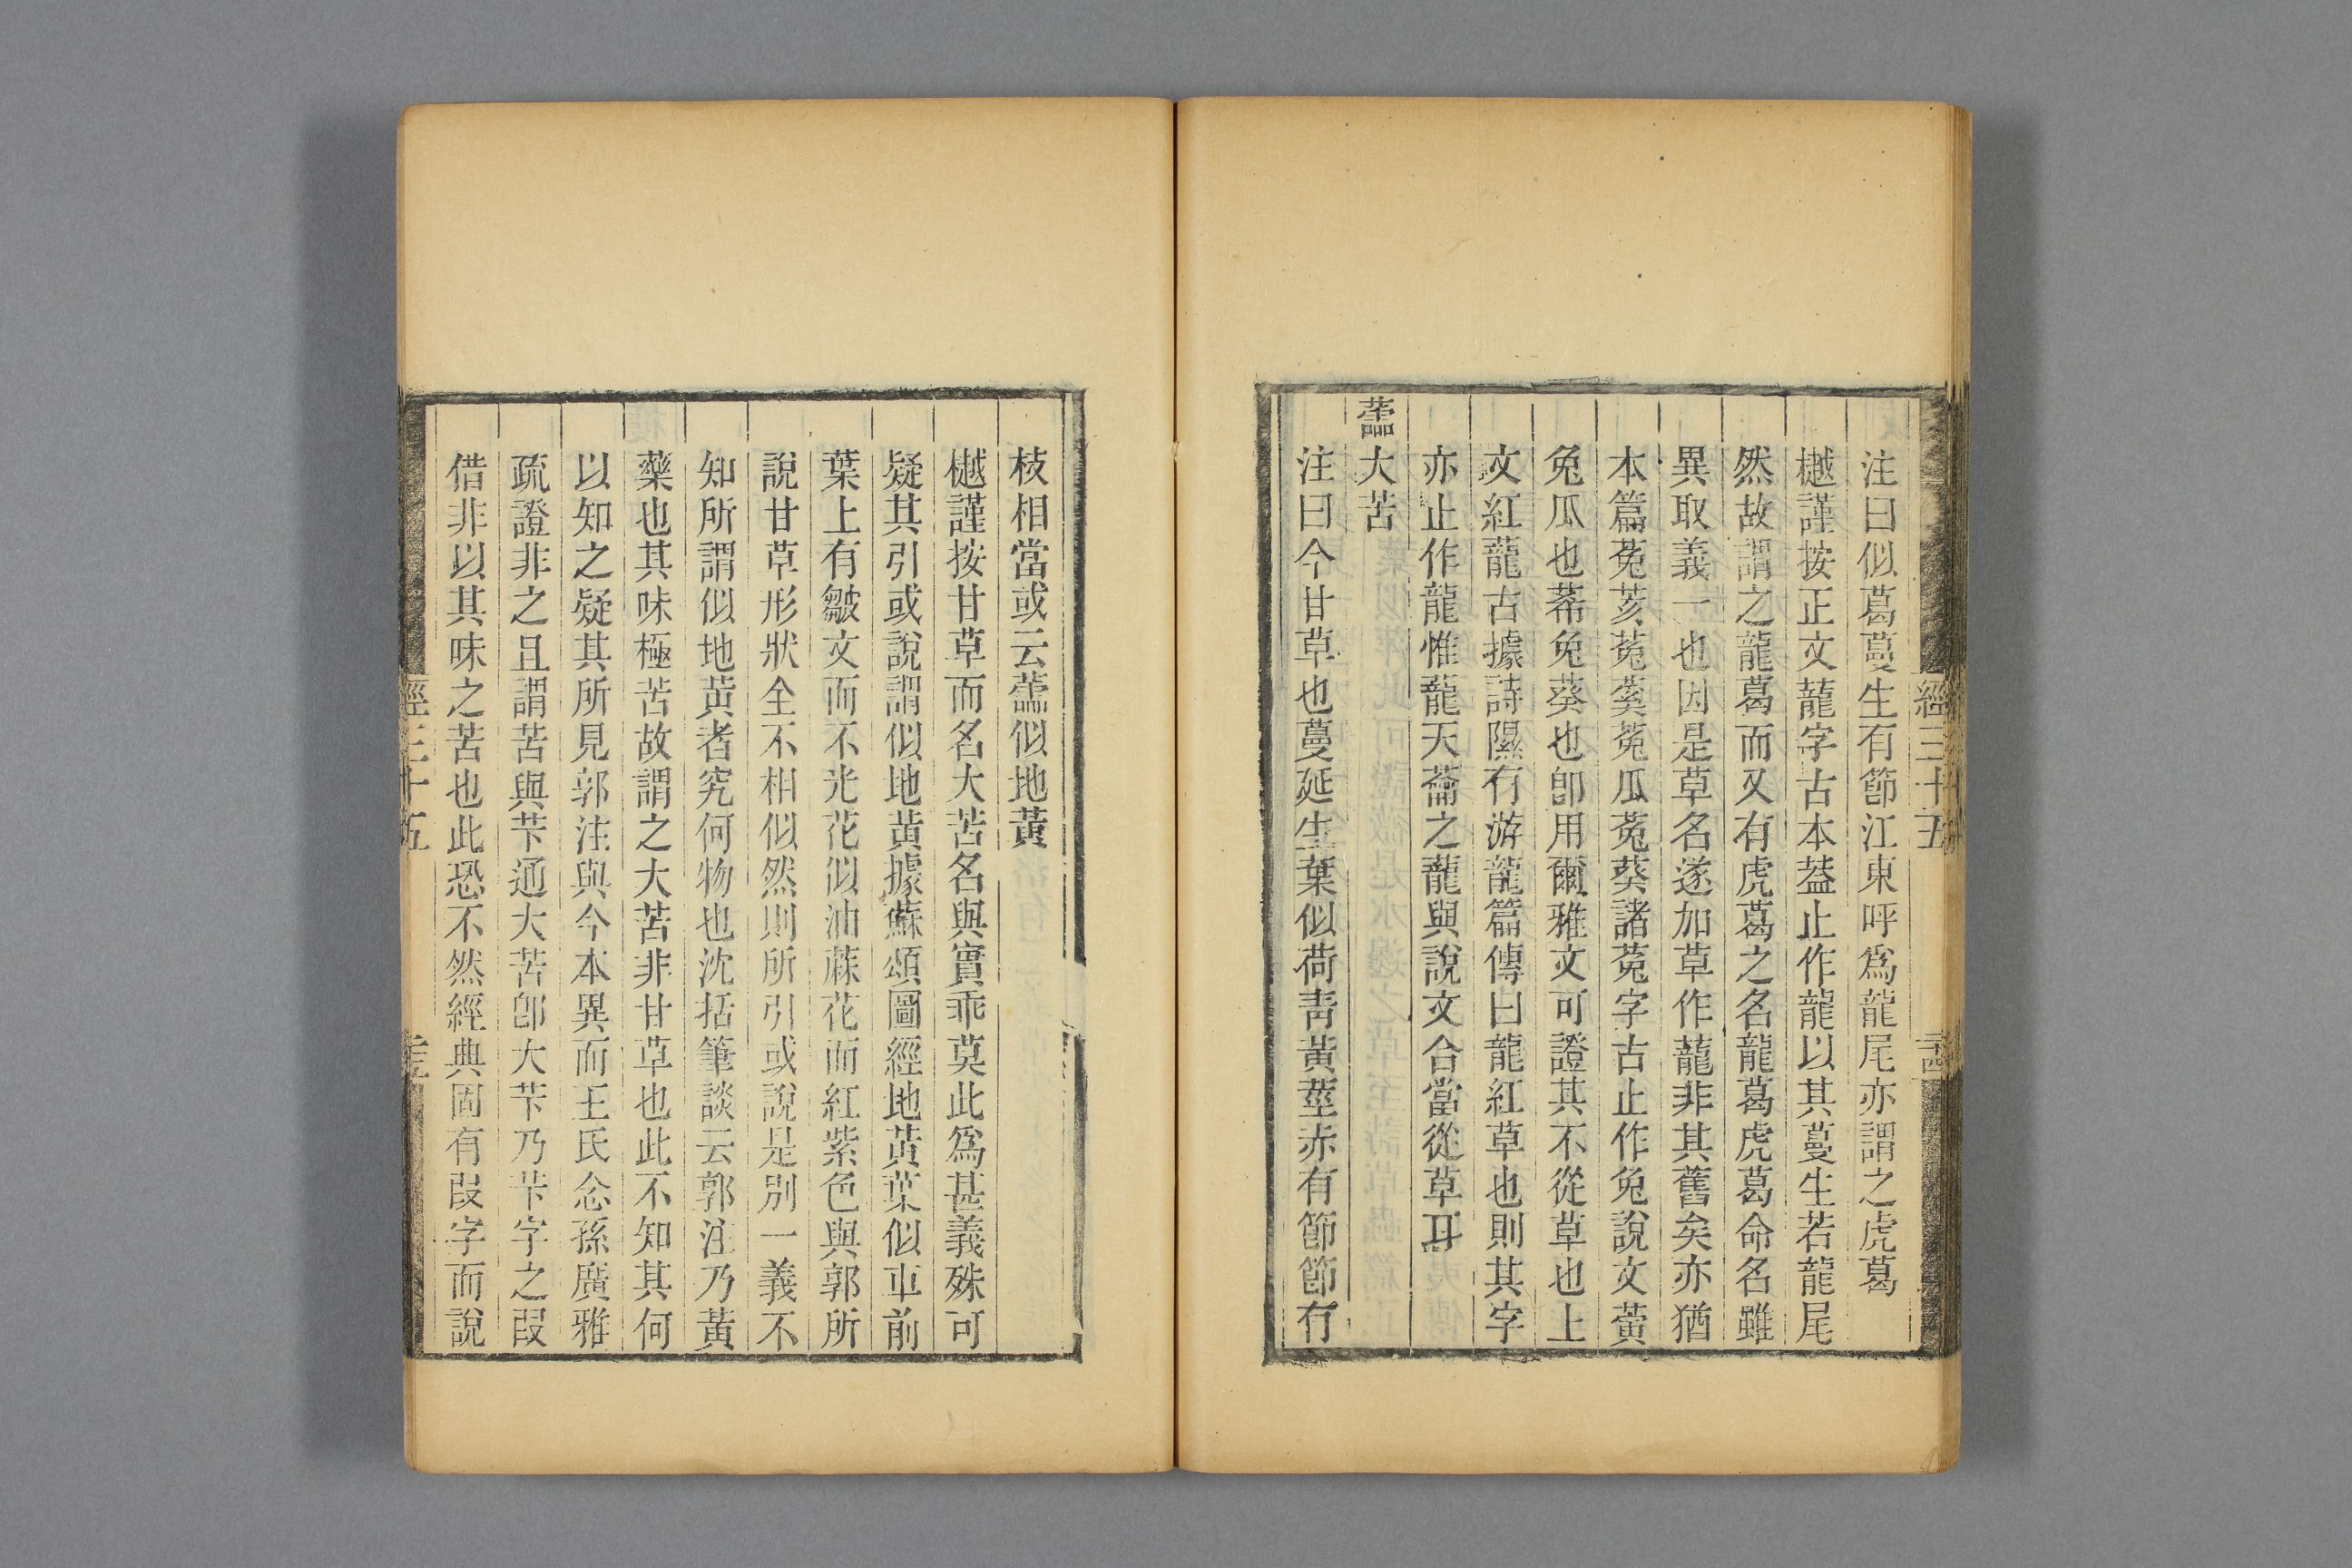 經三十五
注曰似葛蔓生有節江東呼爲龍尾亦謂之虎葛
樾謹按正文蘢字古本葢止作龍以其蔓生若龍尾
然故謂之龍葛而又有虎葛之名龍葛虎葛命名雖
異取義一也因是草名遂加草作蘢非其舊矣亦猶
本篇菟荄菟奚菟瓜菟葵諸菟字古止作兔說文黃
兔瓜也莃兔葵也卽用爾雅文可證其不從草也上
文紅蘢古據詩隰有游龍篇傳曰龍紅草也則其字
亦止作龍惟蘢天蘥之蘢與說文合當從草耳
蘦大苦
注曰今甘草也蔓延生葉似荷靑黃莖赤有節節有
枝相當或云蘦似地黃
樾謹按甘草而名大苦名與實乖莫此爲甚義殊可
疑其引或說謂似地黃據蘇頌圖經地黃葉似車前
葉上有皺文而不光花似油蔴花而紅紫色與郭所
說甘草形狀全不相似然則所引或說是別一義不
知所謂似地黃者究何物也沈括筆談云郭注乃黃
藥也其味極苦故謂之大苦非甘草也此不知其何
以知之疑其所見郭注與今本異而王氏念孫廣雅
疏證非之且謂苦與苄通大苦卽大苄乃苄字之叚
借非以其味之苦也此恐不然經典固有叚字而說
經三十五